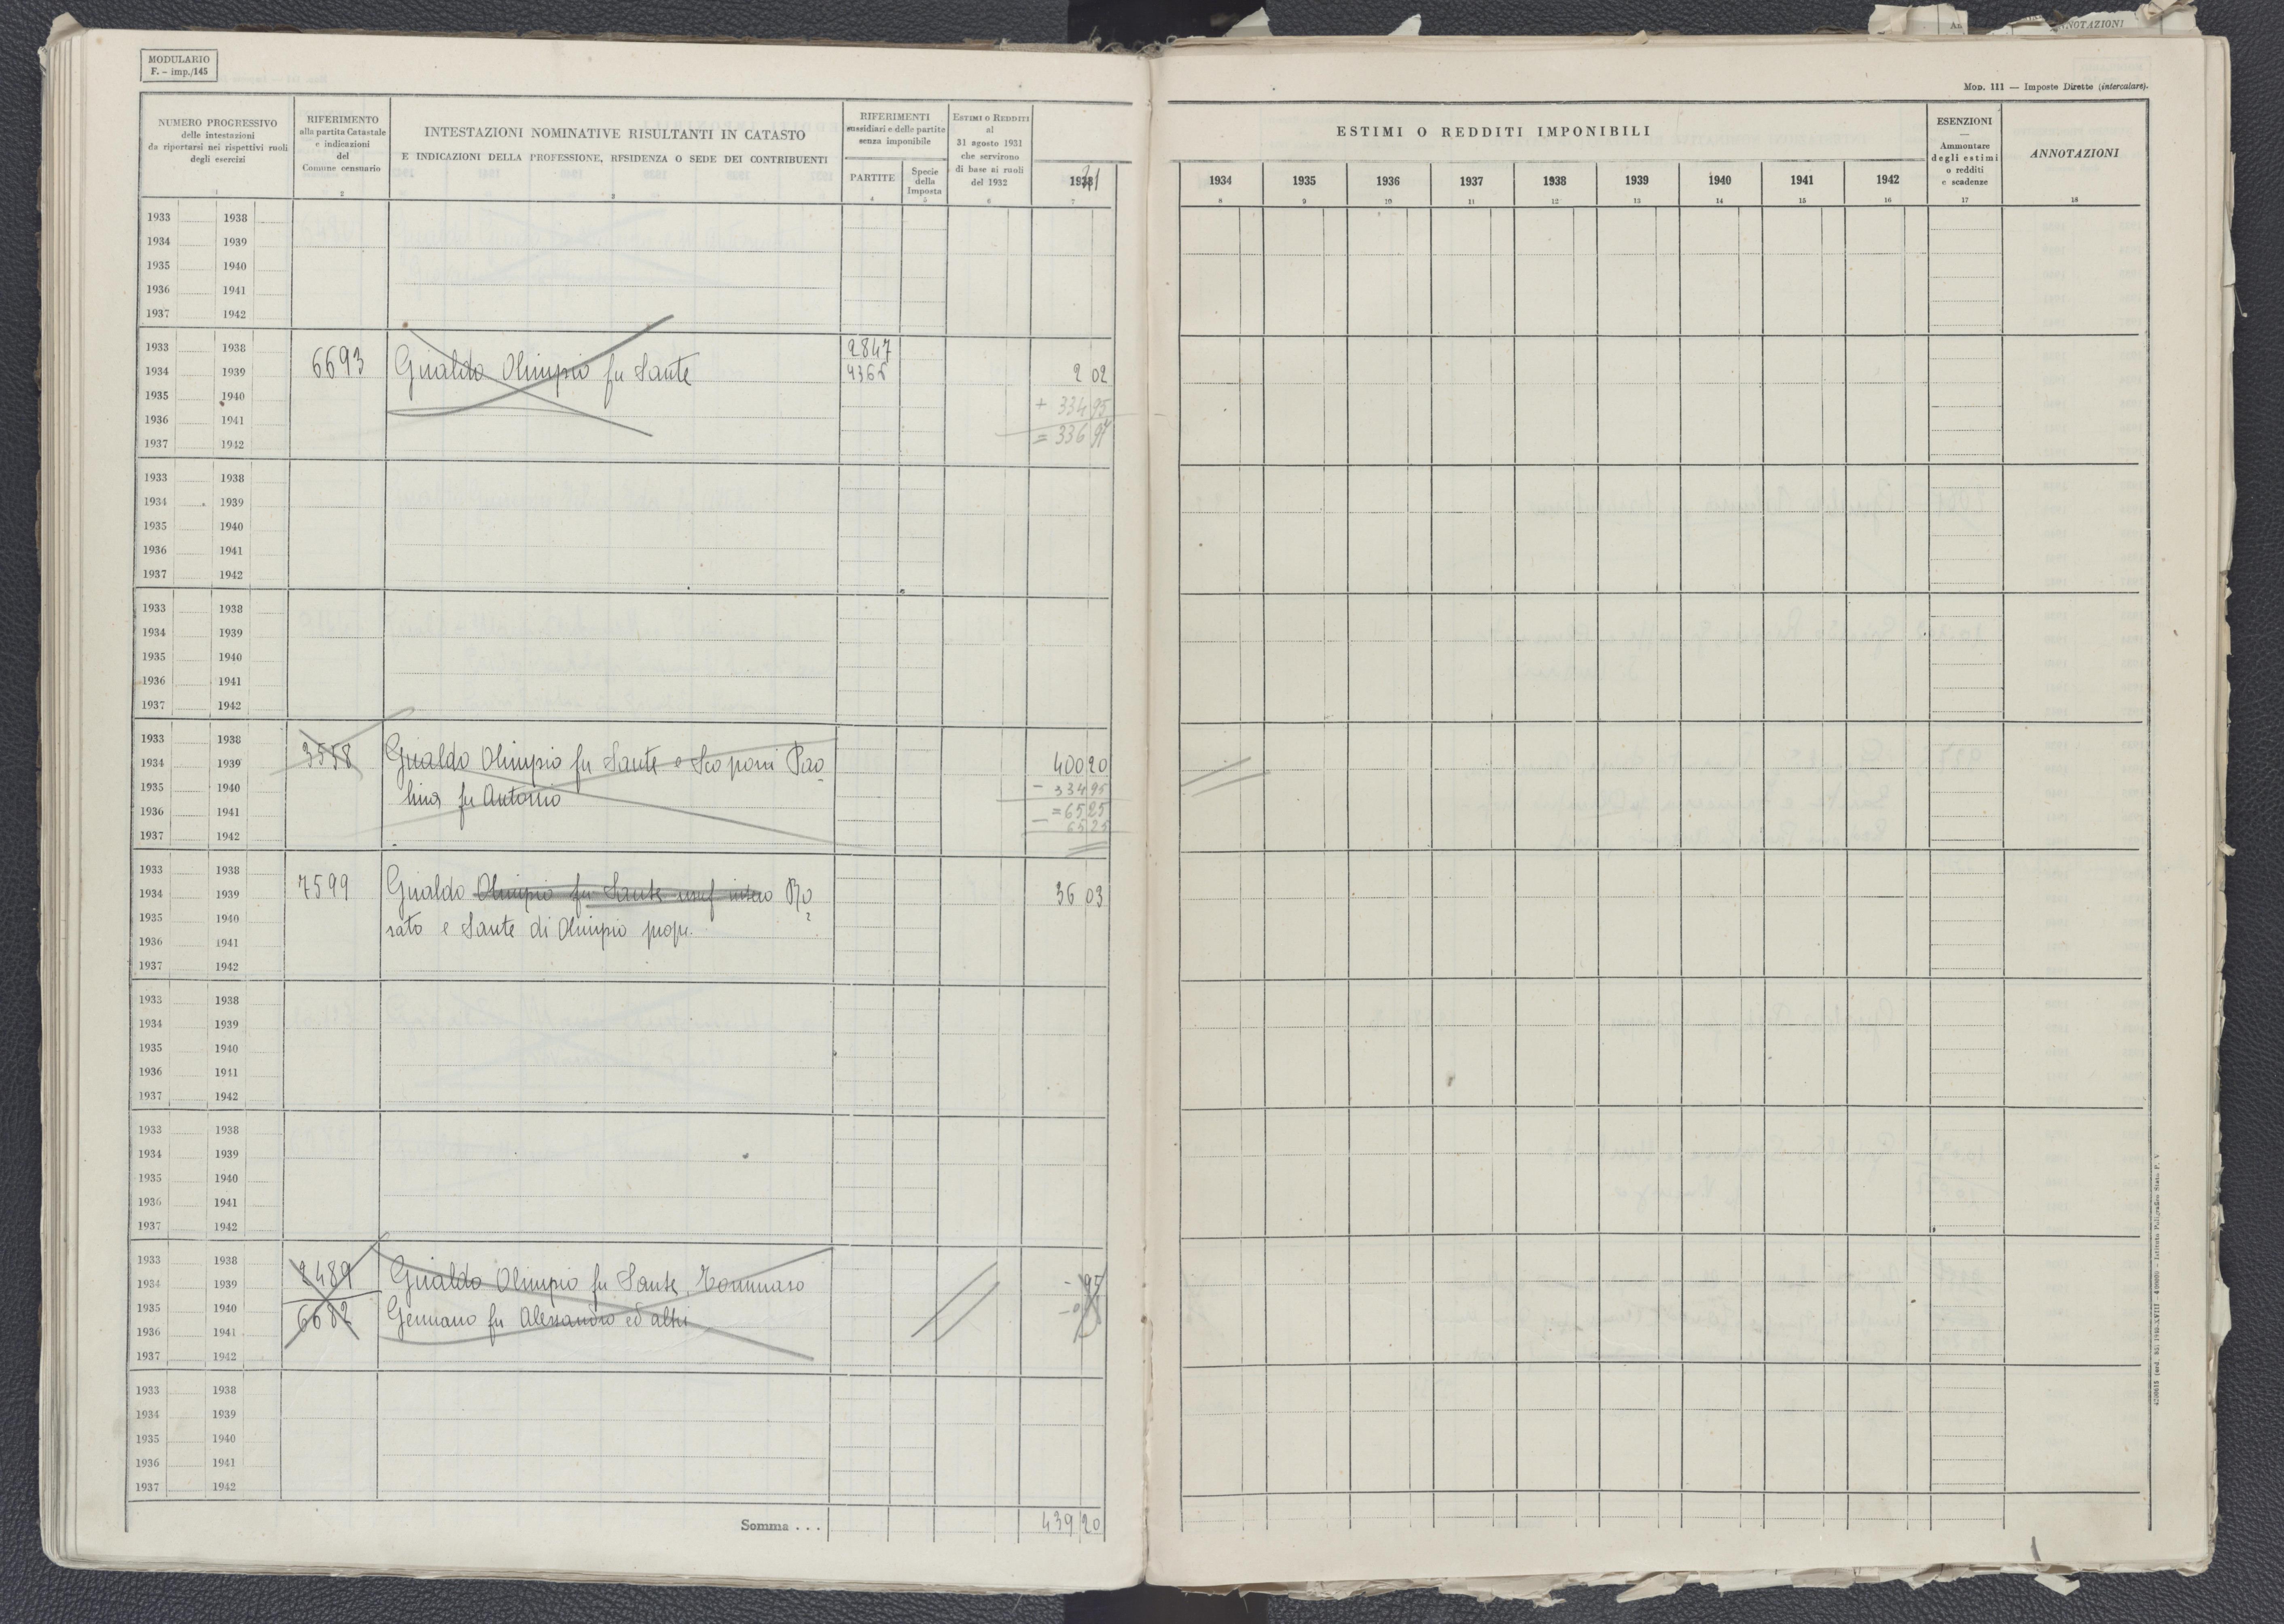 MODULARIO
F. - imp./145
NUMERO PROGRESSIVO
delle intestazioni
da riportarsi nei rispettivi ruoli
degli esercizi
1
RIFERIMENTO
alla partita Catastale
e indicazioni
del
Comune censuario
2
INTESTAZIONI NOMINATIVE RISULTANTI IN CATASTO
E INDICAZIONI DELLA PROFESSIONE, RESIDENZA O SEDE DEI CONTRIBUENTI
3
RIFERIMENTI
sussidiari e delle partite
senza imponibile
PARTITE
4
Specie
della
Imposta
5
ESTIMI O REDDITI
al
31 agosto 1931
che servirono
di base ai ruoli
del 1932
6
7
1933 1938
1934 1939
1935 1940
1936 1941
1937 1942
1933 1938 2847
1934 1939 6693 Gualdo Olimpio fu Sante 2 02
1935 1940 + 334 95
1936 1941
1937 1942 = 336 97
1933 1938
1934 1939
1935 1940
1936 1941
1937 1942
1933 1938
1934 1939
1935 1940
1936 1941
1937 1942
1933 1938
1934 1939 Gualdo Olimpio fu Sante e Scoponi Pao= 400 20
1935 1940 lina fu Antonio - 334 95
1936 1941 = 65 25
1937 1942 - 65 25
1933 1938
1934 1939 7599 Gualdo Olimpio fu Sante usuf intero Ro= 36 03
1935 1940
1936 1941 sato e Sante di Olimpio propr.
1937 1942
1933 1938
1934 1939
1935 1940
1936 1941
1937 1942
1933 1938
1934 1939
1935 1940
1936 1941
1937 1942
1933 1938
1934 1939 2489 Gualdo Olimpio fu Sante, Tommaso - 95
1935 1940 6682 Gennaro fu Alessandro ed altri
1936 1941
1937 1942
1933 1938
1934 1939
1935 1940
1936 1941
1937 1942
Somma . . . 439 20
MOD. 111 — Imposte Dirette (intercalare).
ESTIMI O REDDITI IMPONIBILI
1934 1935 1936 1937 1938 1939 1940 1941 1942
8 9 10 11 12 13 14 15 16
ESENZIONI
—
Ammontare
degli estimi
o redditi
e scadenze
17
ANNOTAZIONI
18
ANNOTAZIONI